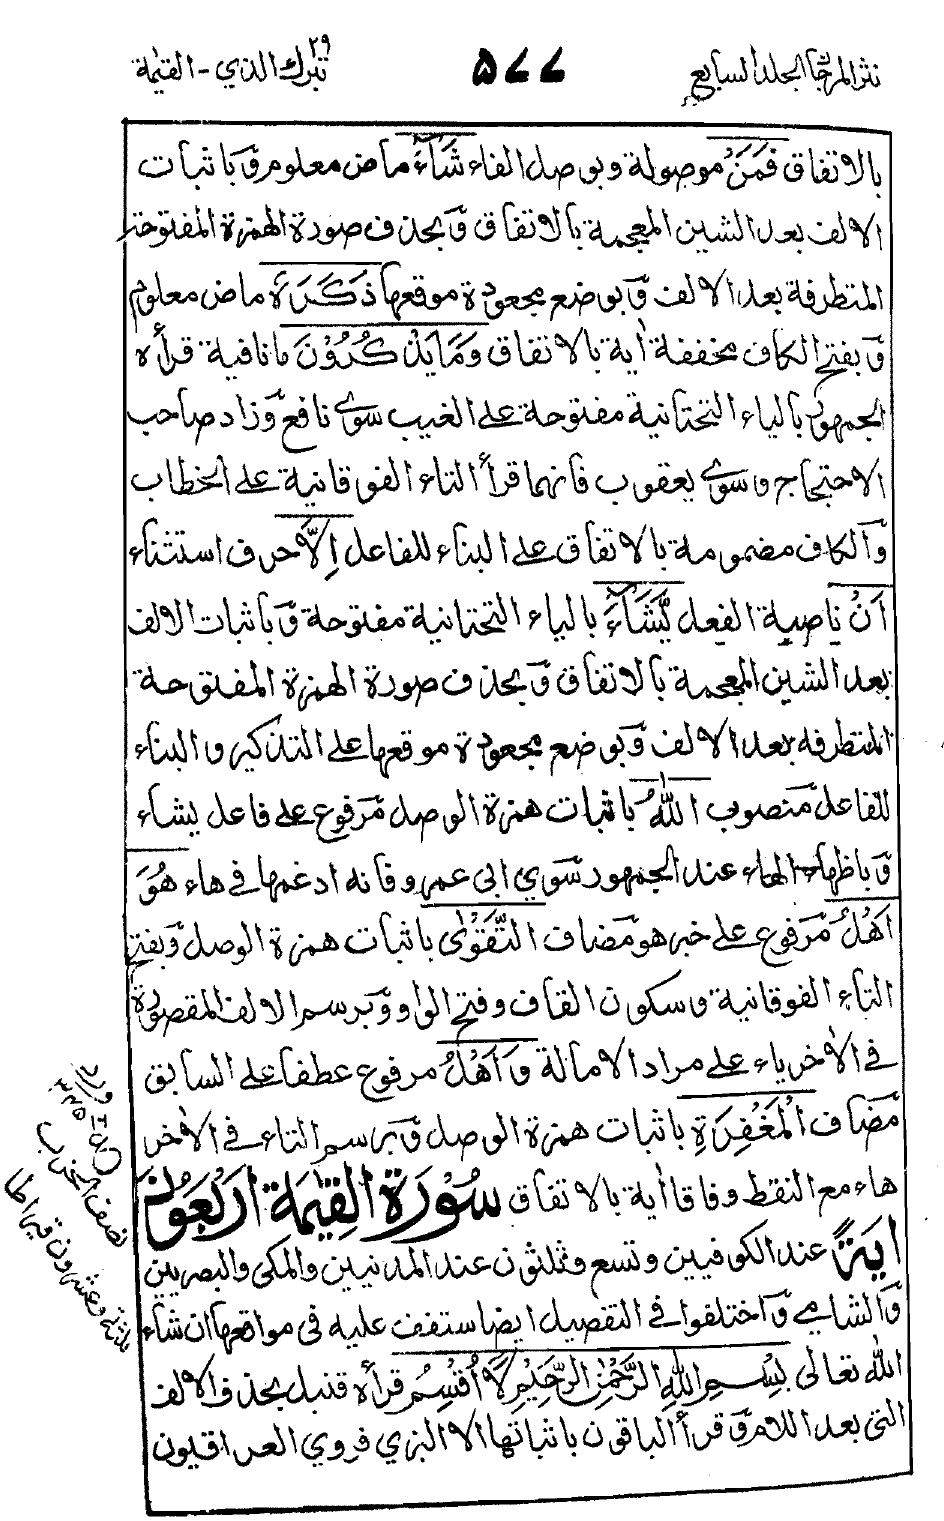 نثر المرجان الجلد السابع
٥٧٧
تبرك الذي ٢٩ - القيمة
بالاتفاق فَمَنْ موصولة وبوصل الفاء شَآءَ ماض معلوم وَباثبات
الالف بعد الشين المعجمة بالاتفاق وَبحذف صورة الهمزة المفتوحة
المتطرفة بعد الالف وَبوضع مجعودة موقعها ذَكَرَهٗ ماض معلوم
وَبفتح الكاف مخففة اٰية بالاتفاق وَمَا يَذْكُرُوْنَ ما نافية قرأه
الجمهور بالياء التحتانية مفتوحة على الغيب سوى نافع وَزاد صاحب
الاحتجاج وسوى يعقوب فانهما قرأا التاء الفوقانية على الخطاب
وَالكاف مضمومة بالاتفاق على البناء للفاعل اِلَّآ حرف استثناء
اَنْ ناصبة الفعل يَّشَآءَ بالياء التحتانية مفتوحة وَباثبات الالف
بعد الشين المعجمة بالاتفاق وَبحذف صورة الهمزة المفتوحة
المتطرفة بعد الالف وَبوضع مجعودة موقعها على التذكير والبناء
للفاعل مَنصوب اللّٰهُ باثبات همزة الوصل مَرفوع على فاعل يشاء
وَباظهار الهاء عند الجمهور سَوى ابى عمرو فانه ادغمها في هاء هُوَ
اَهْلُ مَرفوع على خبر هو مَضاف التَّقْوٰى باثبات همزة الوصل وَبفتح
التاء الفوقانية وسكون القاف وفتح الواو وَبرسم الالف المقصورة
في الاٰخر ياء على مراد الامالة وَاَهْلُ مرفوع عطفا على السابق
مَضاف الْمَغْفِرَةِ باثبات همزة الوصل وَبرسم التاء في الاٰخر
هاء مع النقط وفاقا اٰية بالاتفاق سُوْرَة القِيٰمَة اَرْبَعُوْنَ
اٰيَةً عند الكوفيين وتسع وثلثون عند المدنيين والمكى والبصريين
وَالشامي وَاختلفوا في التفصيل ايضا ستقف عليه في مواقعها ان شاء
اللّٰه تعالى بِسْمِ اللّٰهِ الرَّحْمٰنِ الرَّحِيْمِ لَآ اُقْسِمُ قرأه قنبل بحذف الالف
التى بعد اللام وَقرأ الباقون باثباتها الا البزي فروي العراقيون
نصف الحزب